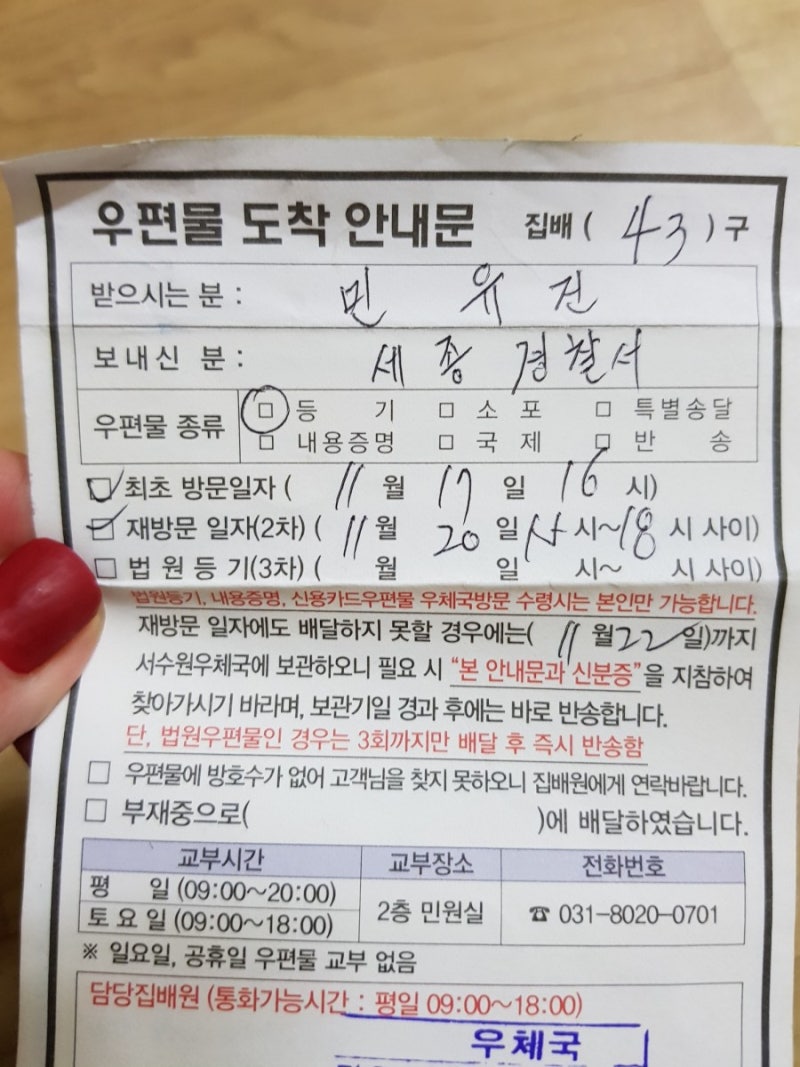 우편물 도착 안내문 집배 ( 43 ) 구
받으시는 분 : 민 유 진
보내신 분 : 세 종 경찰서
우편물 종류 □ 등 기 □ 소 포 □ 특별송달
□ 내용증명 □ 국 제 □ 반 송
☑ 최초 방문일자 ( 11 월 17 일 16 시)
☑ 재방문 일자(2차) ( 11 월 20 일 시~18 시 사이)
□ 법 원 등 기(3차) ( 월 일 시~ 시 사이)
법원등기, 내용증명, 신용카드우편물 우체국방문 수령시는 본인만 가능합니다.
재방문 일자에도 배달하지 못할 경우에는( 11 월 22 일)까지
서수원우체국에 보관하오니 필요 시 “본 안내문과 신분증”을 지참하여
찾아가시기 바라며, 보관기일 경과 후에는 바로 반송합니다.
단, 법원우편물인 경우는 3회까지만 배달 후 즉시 반송함
□ 우편물에 방호수가 없어 고객님을 찾지 못하오니 집배원에게 연락바랍니다.
□ 부재중으로( )에 배달하였습니다.
교부시간 교부장소 전화번호
평 일 (09:00~20:00) 2층 민원실 ☎ 031-8020-0701
토 요 일 (09:00~18:00)
※ 일요일, 공휴일 우편물 교부 없음
담당집배원 (통화가능시간 : 평일 09:00~18:00)
우체국